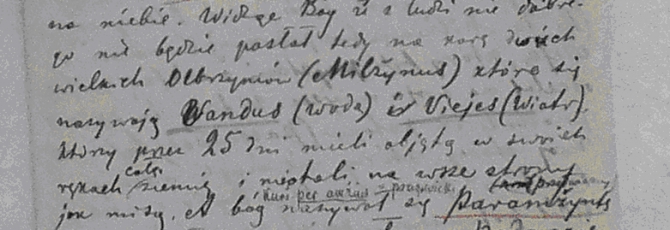 na niebie. Widząc Bóg że z ludzi nic dobre-
go nie będzie posłał tedy na karę dwóch
wielkich Olbrzymów (Milżynus) które się
nazywają Wandus (woda) ir Viejes (Wiatr).
którzy przez 25 dni mieli objętą w swoich
rękach całą ziemię i miotali na wsze strony
jak misą. A bóg nazywał się Paramżyns